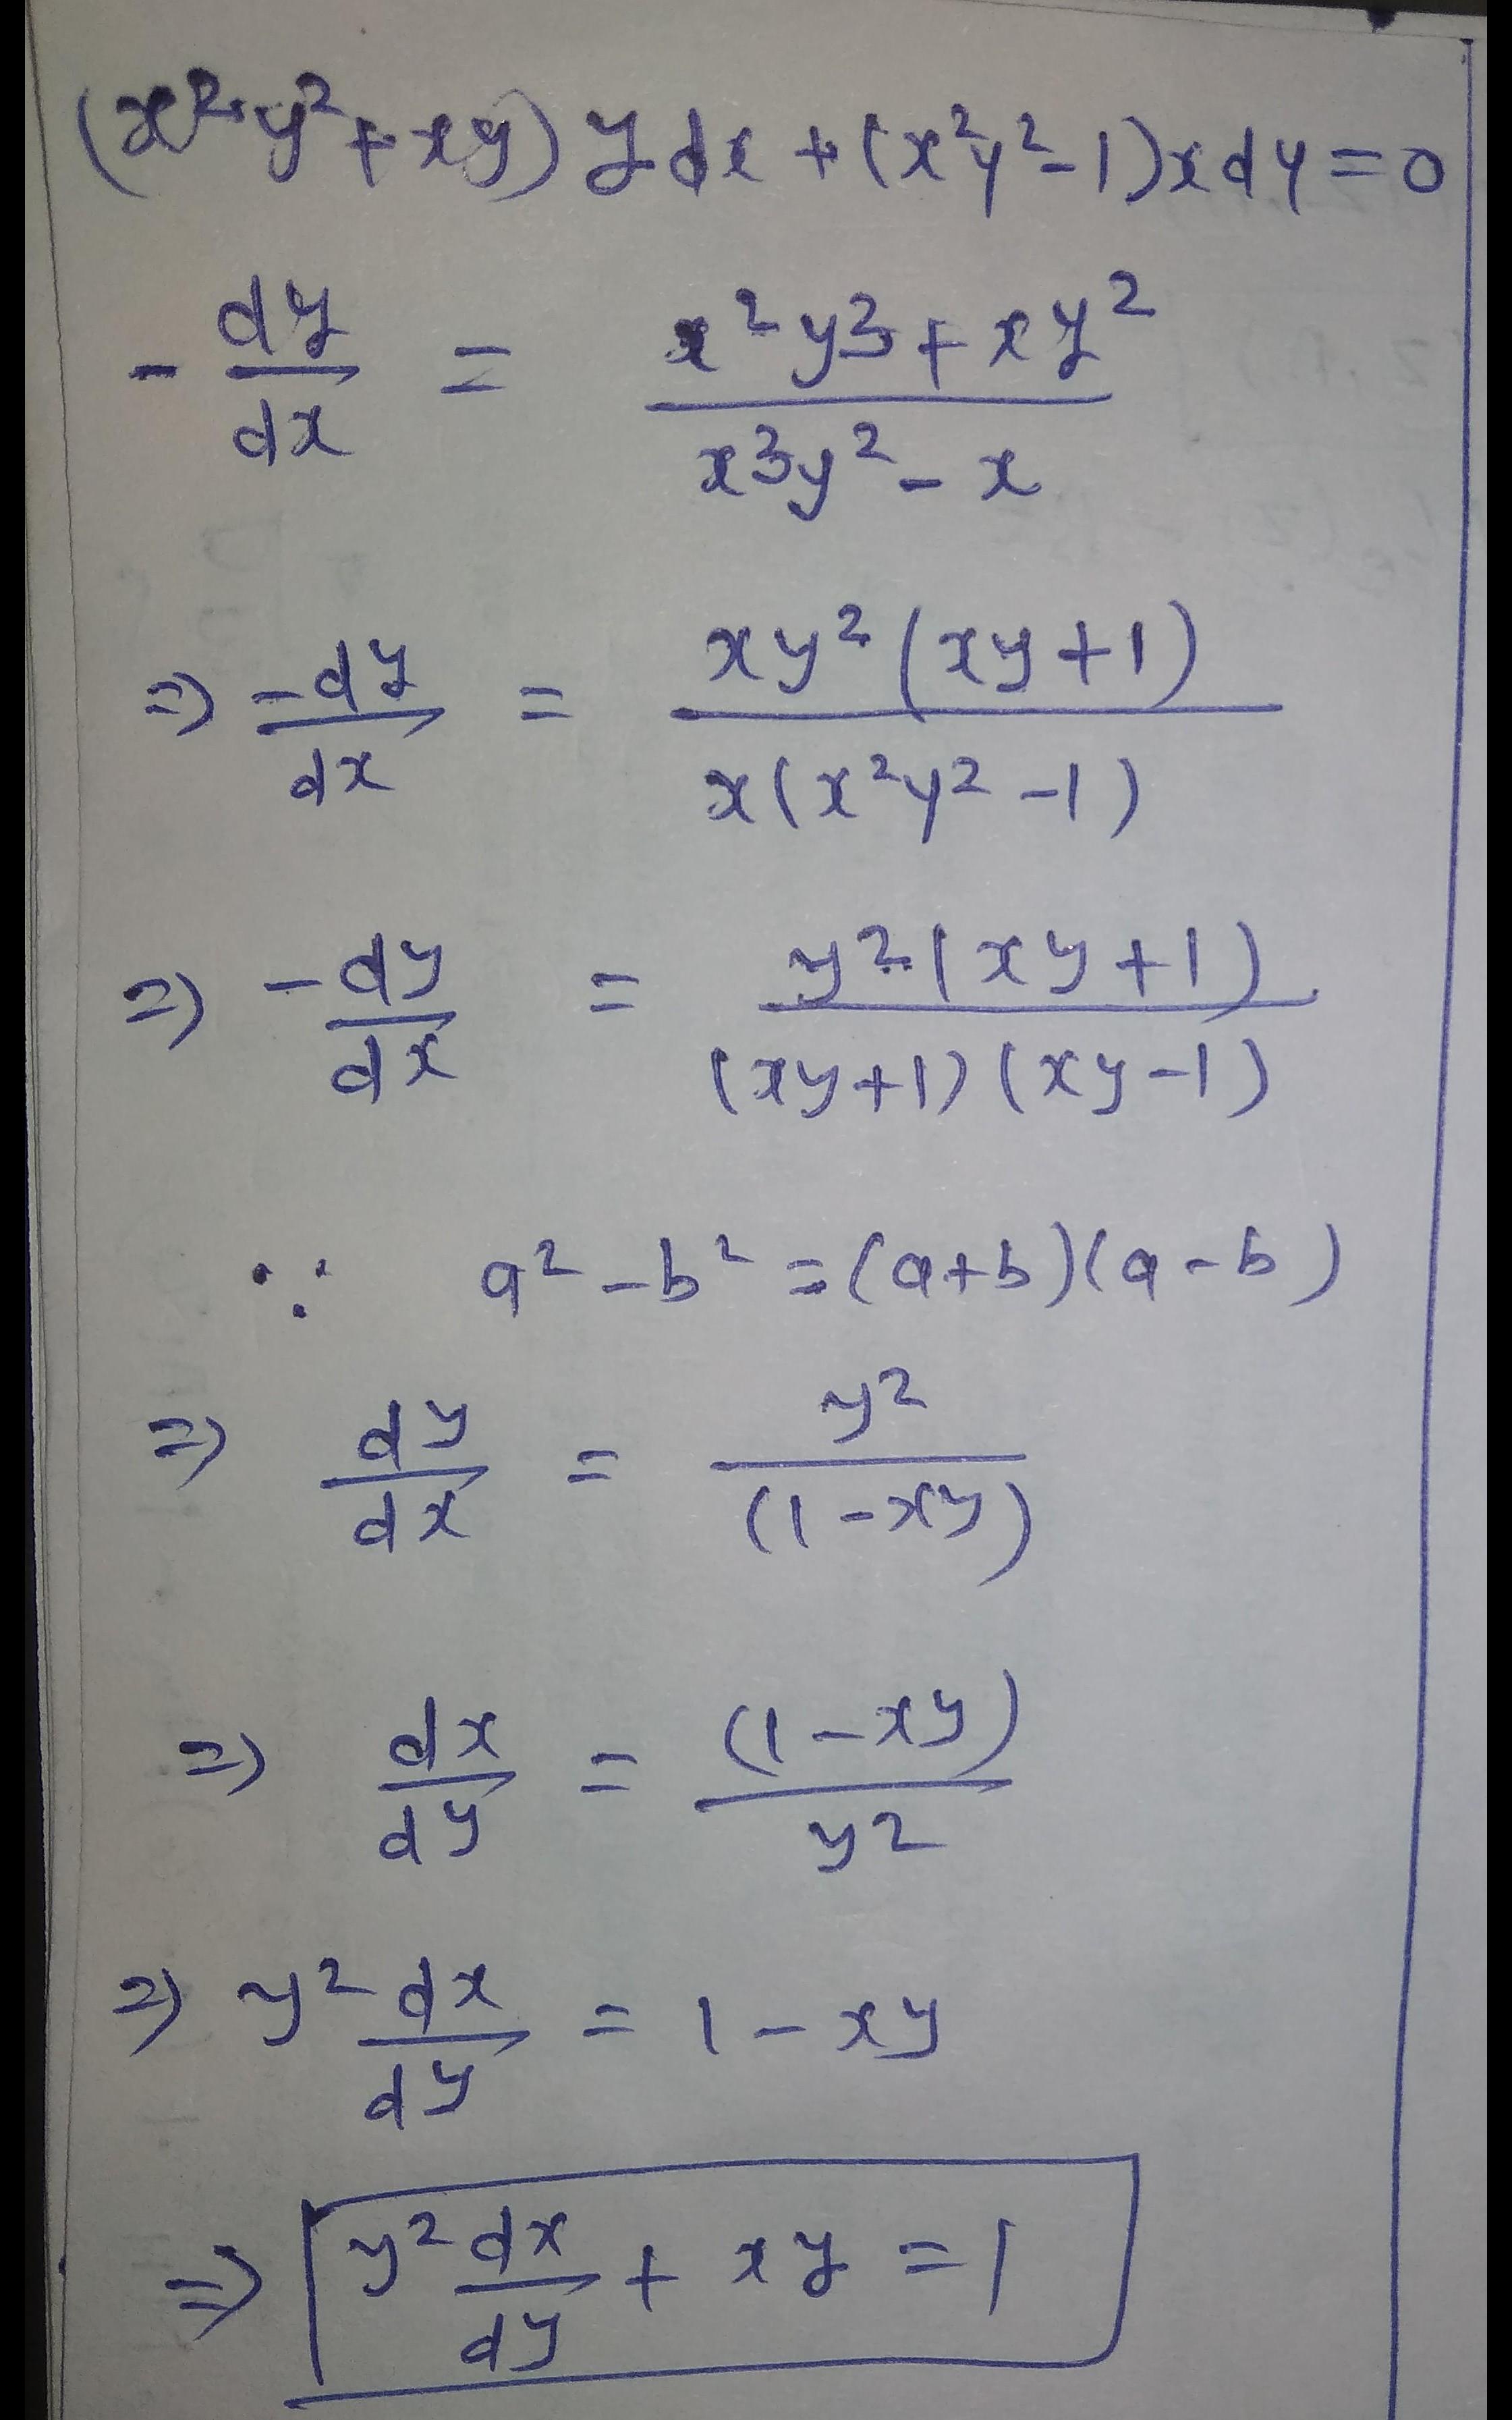 (x²y²+xy) y dx + (x²y²-1) x dy = 0
- dy/dx = (x²y³ + xy²)/(x³y² - x)
=> -dy/dx = xy²(xy+1)/x(x²y²-1)
=> -dy/dx = y²(xy+1)/(xy+1)(xy-1)
∵ a²-b² = (a+b)(a-b)
=> dy/dx = y²/(1-xy)
=> dx/dy = (1-xy)/y²
=> y² dx/dy = 1-xy
=> y² dx/dy + xy = 1